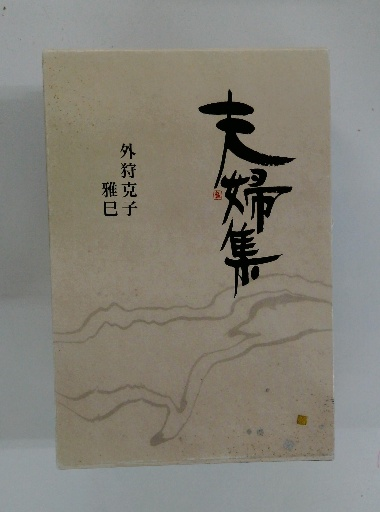 夫婦集
外狩克子
雅巳